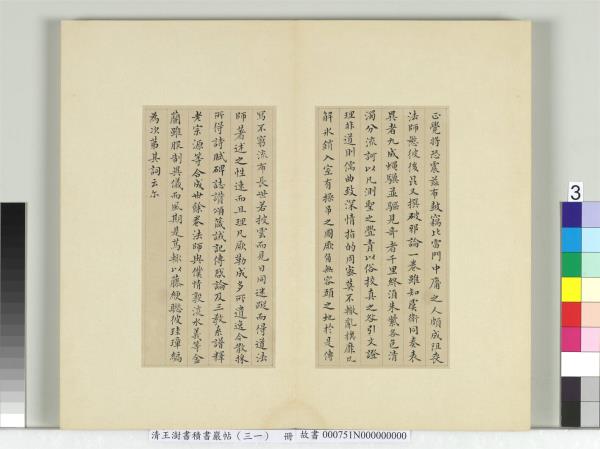 正覺將恐震茲布鼓竊比雷門中庸之人頗成阻喪
法師愍彼後昆又撰破邪論一卷雖知虞衛同奏表
異者九成蠅驥並驅見奇者千里終須朱紫各色清
濁分流訶以凡測聖之舋責以俗校真之咎引文證
理非道則儒曲致深情指的周密莫不轍亂旗靡瓦
解冰銷入室有操矛之圖厥角無容頭之地於是傳
寫不窮流布長世若披雲而見日同迷蹤而得道法
師著述之性速而且理凡厥勒成多所遺逸今散採
所得詩賦碑誌讚頌箴誡記傳啟論及三教系譜釋
老宗源等合成世餘卷法師與僕情敦淡水義等金
蘭雖服制異儀而風期是篤輒以藤緶聯彼珪璋編
為次第其詞云尒
清王澍書積書巖帖(三一) 冊 故書 000751N000000000
3